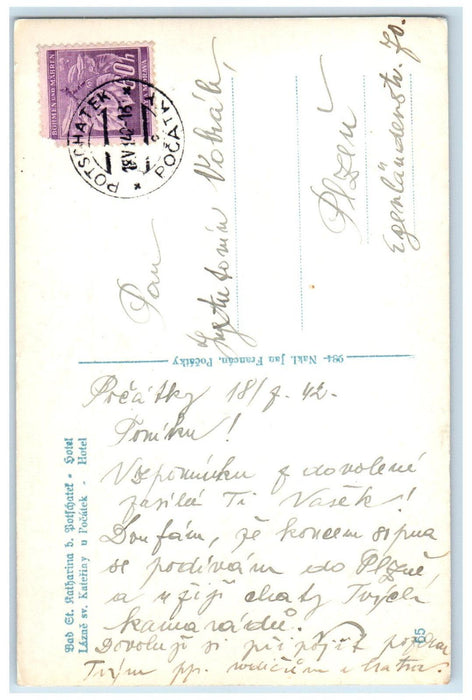 BÖHMEN UND MÄHREN
POTSCHATEK
POČÁTKY
Pan
Antonín Vokáč,
Plzeň
Egerländerstr. 70.
984- Nakl. Jan Francán, Počátky
Bad St. Katharina b. Potschatek - Hotel
Lázně sv. Kateřiny u Počátek - Hotel
65
Počátky 18/7. 42.
Toníku!
Vzpomínku z dovolené
zasílá Ti Vašek!
Doufám, že koncem srpna
se podívám do Plzně,
a užiji chaty Tvých
kamarádů.
Dovoluji si připojit pozdrav
Tvým pp. rodičům